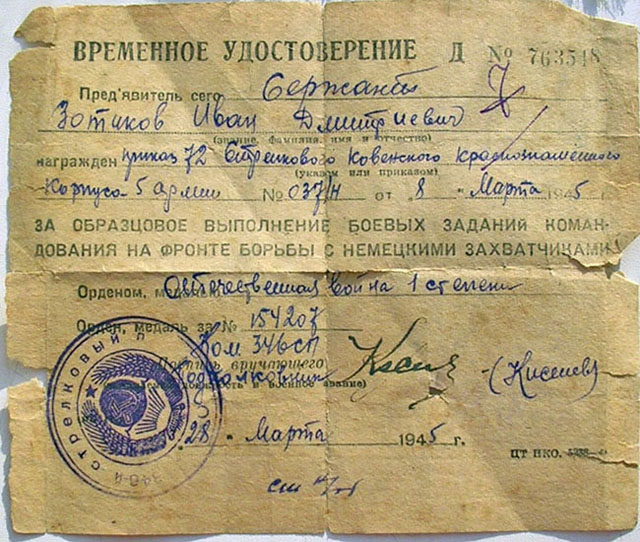 ВРЕМЕННОЕ УДОСТОВЕРЕНИЕ Д № 763548
Пред'явитель сего Сержант
Зотиков Иван Дмитриевич
(звание, фамилия, имя и отчество)
награжден приказ 72 Стрелкового Ковенского Краснознамённого
(указом или приказом)
Корпуса 5 армии № 037/н от "8" Марта 1945 г
ЗА ОБРАЗЦОВОЕ ВЫПОЛНЕНИЕ БОЕВЫХ ЗАДАНИЙ КОМАН-
ДОВАНИЯ НА ФРОНТЕ БОРЬБЫ С НЕМЕЦКИМИ ЗАХВАТЧИКАМИ
Орденом, медалью Отечественная война 1 степени
Орден, медаль за № 154207
Ком 346 СП
Подпись вручающего
Подполковник (Киселев)
(должность и военное звание)
"28" Марта 1945 г.
ЦТ НКО.
346-й СТРЕЛКОВЫЙ П